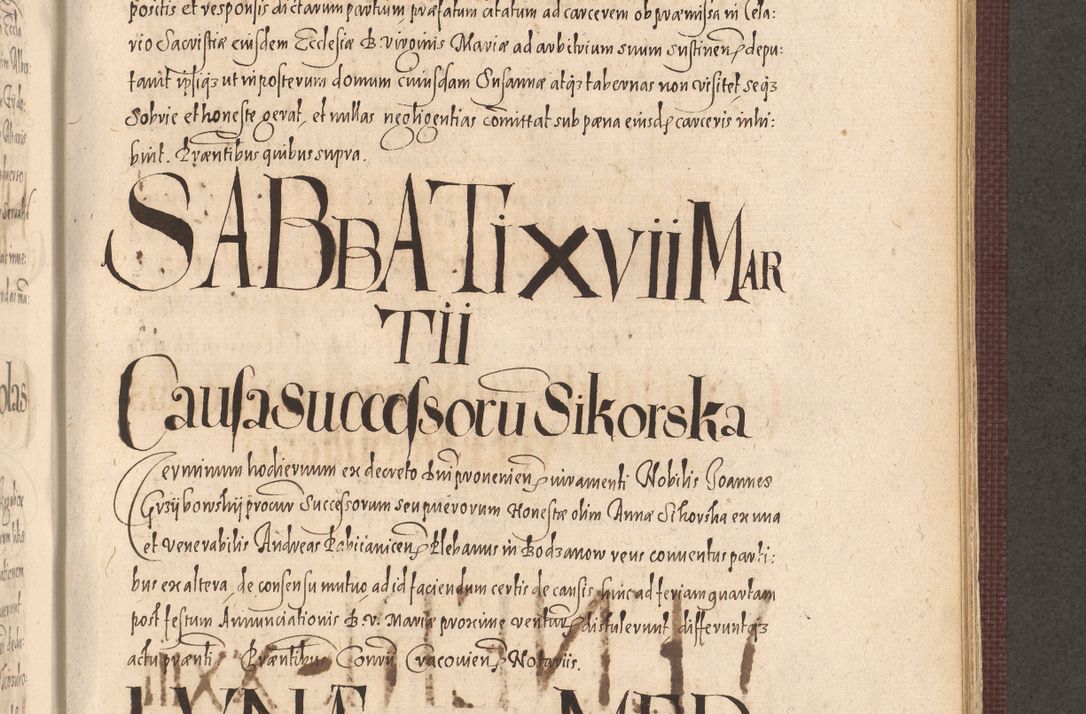 positis et responsis dictarum partium, præfatum citatum ad carcerem ob præmissa in Cela:
rio Sacristiæ eiusdem Ecclesiæ B. virginis Mariæ ad arbitrium suum sustinen: depu:
tavit ipsiq₃ ut in posterum domum cuiusdam Susannæ atq₃ tabernas non visitet, seq₃
sobrie et honeste gerat, et nullas negligentias comittat sub pæna eiusd: carceris inhi:
buit. Præntibus quibus supra.
SABBATI XVII MAR
TII
Causa Successorū Sikorska
Terminum hodiernum ex decreto Dni provenien: iuramenti Nobilis Joannes
Grzÿbowskÿ procur Successorum seu puerorum Honestæ olim Annæ Sikorska ex una
et venerabilis Andreas Pabiianicen: Plebanus in Bodzanow reus conventus parti:
bus ex altera, de consensu mutuo ad id faciendum certis de causis hinc ad feriam quartam
post festum Annunciationis B. v. Mariæ proxime ventur: distulerunt differuntq₃
actu prænti Præntibus Cracovien: Notariis.
LUNÆ MER